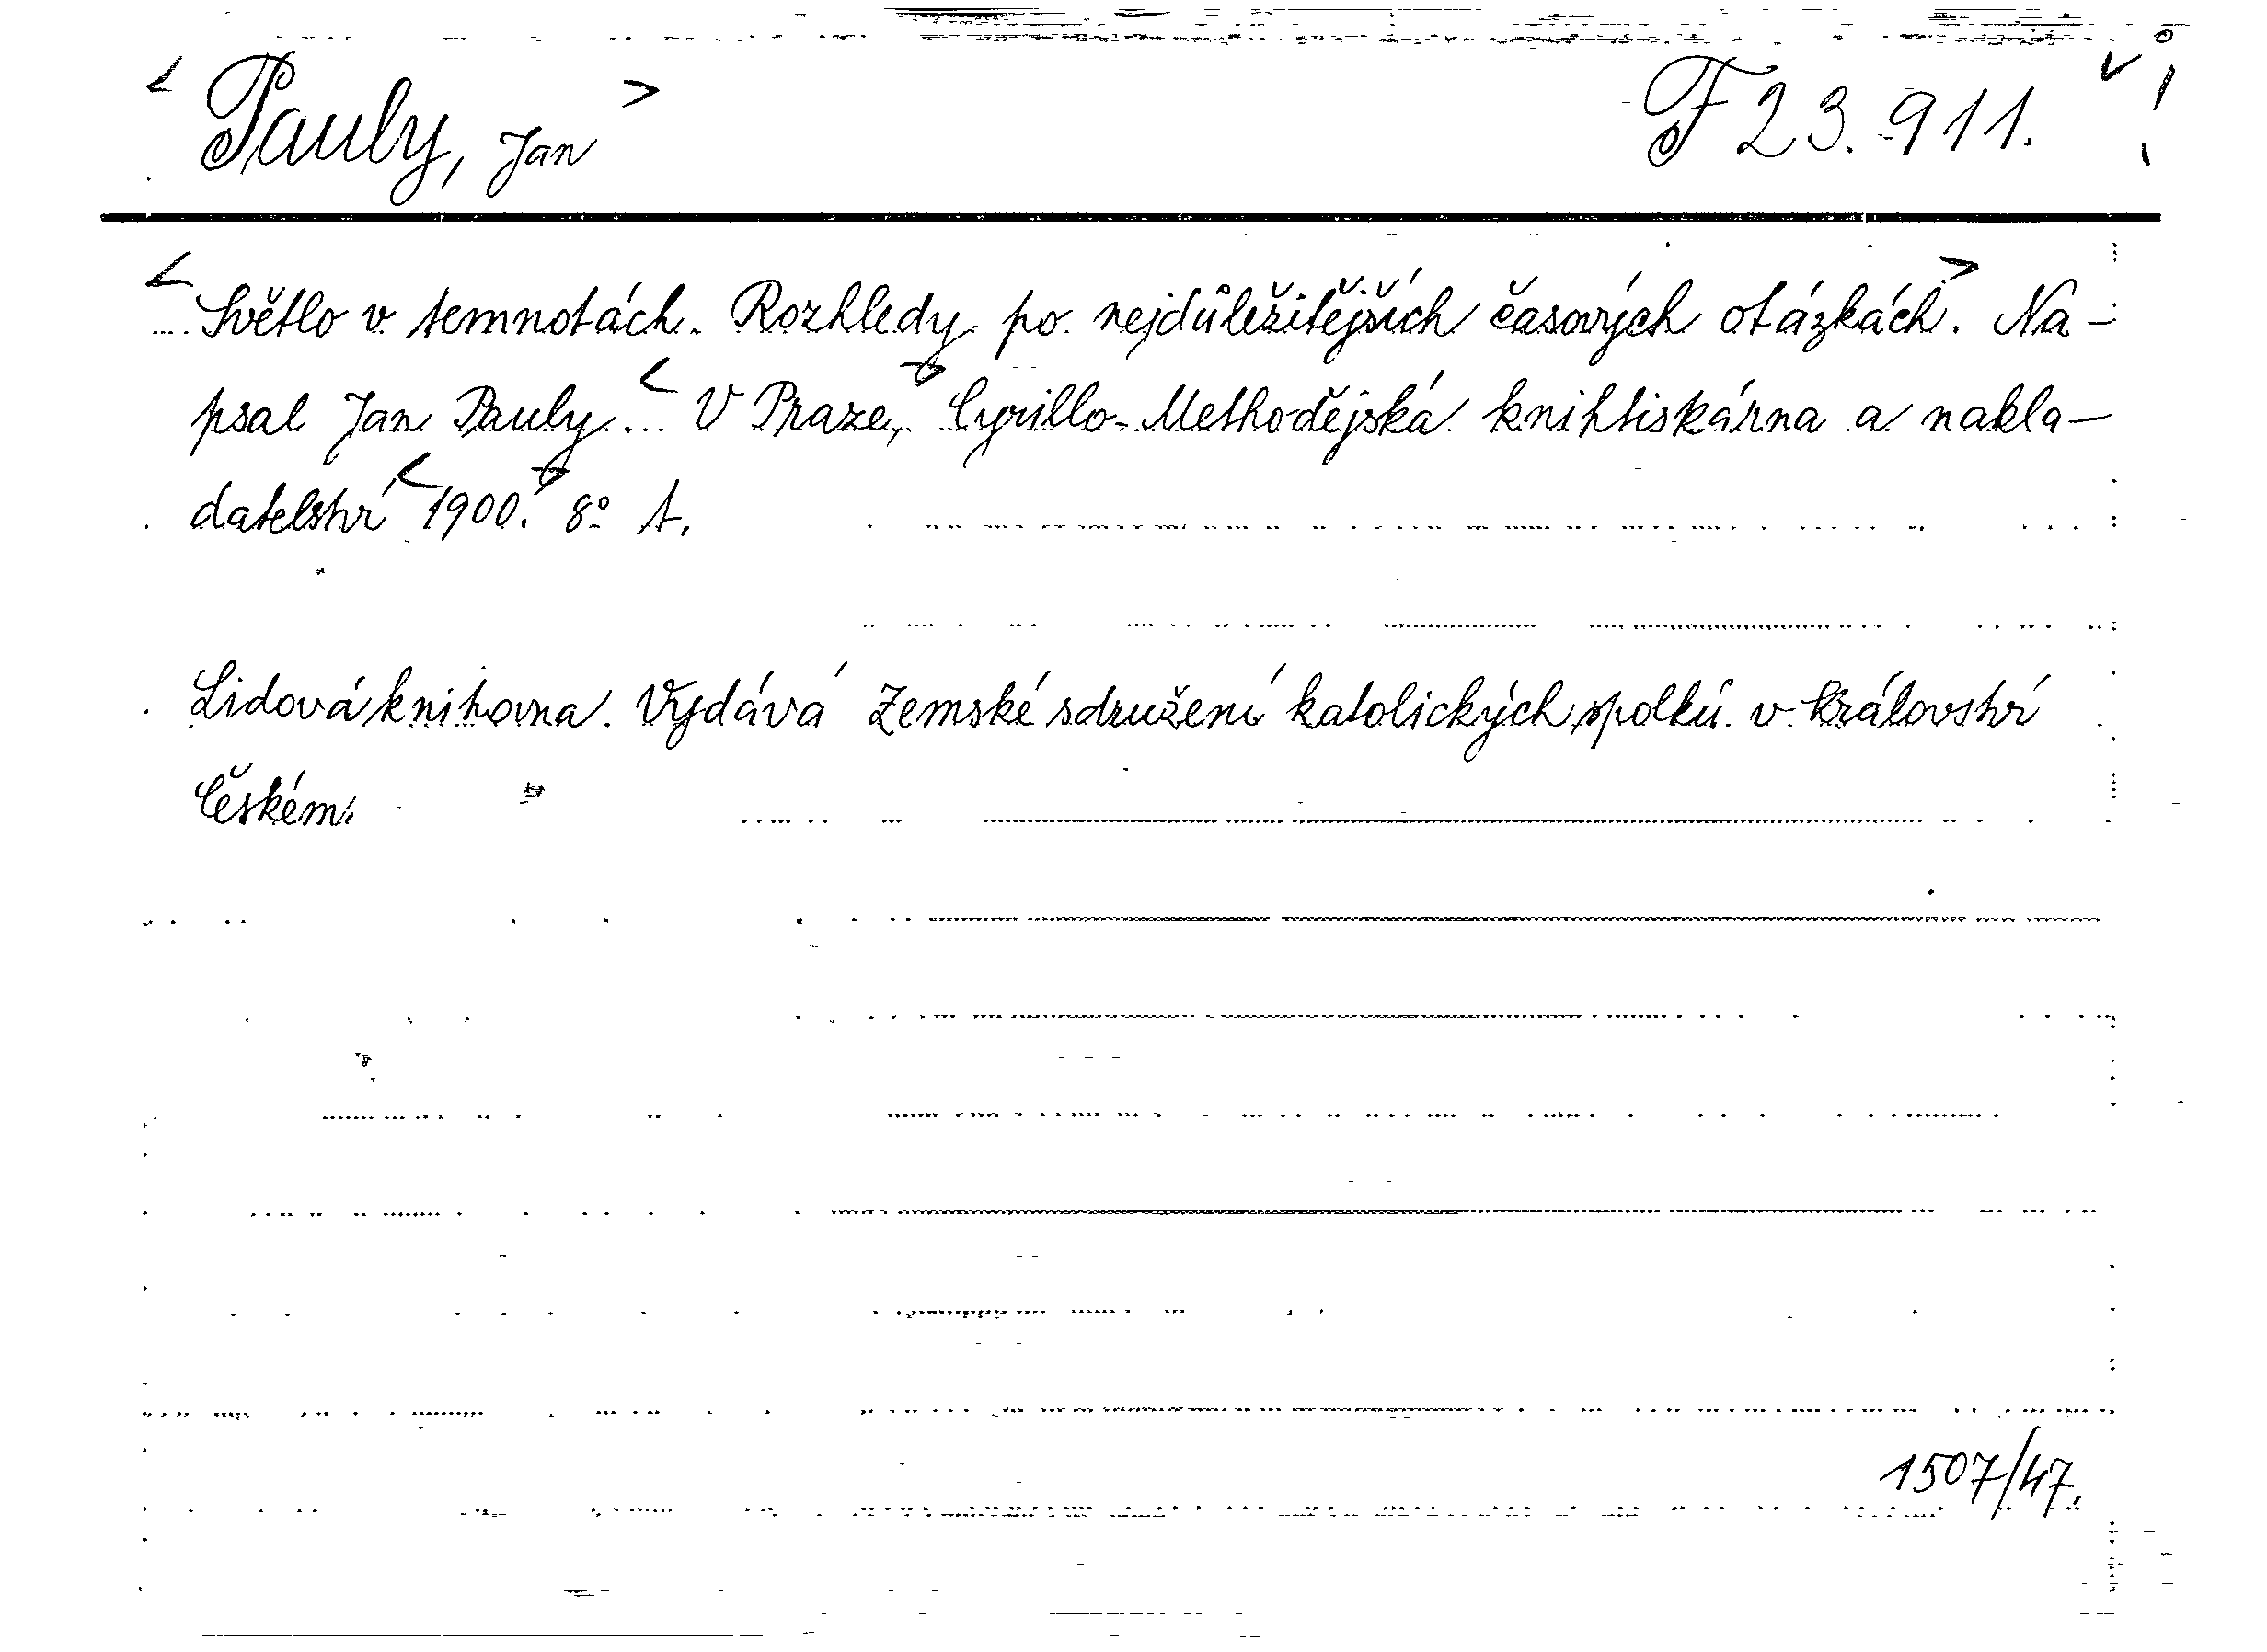 < Pauly, Jan > F 23.911. v !
< Světlo v temnotách. Rozhledy po nejdůležitějších časových otázkách. > Na-
psal Jan Pauly. < V Praze, > Cyrillo-Methodějská knihtiskárna a nakla-
datelství < 1900. > 8° A.
Lidová knihovna. Vydává Zemské sdružení katolických spolků v království
Českém.
1507/47.